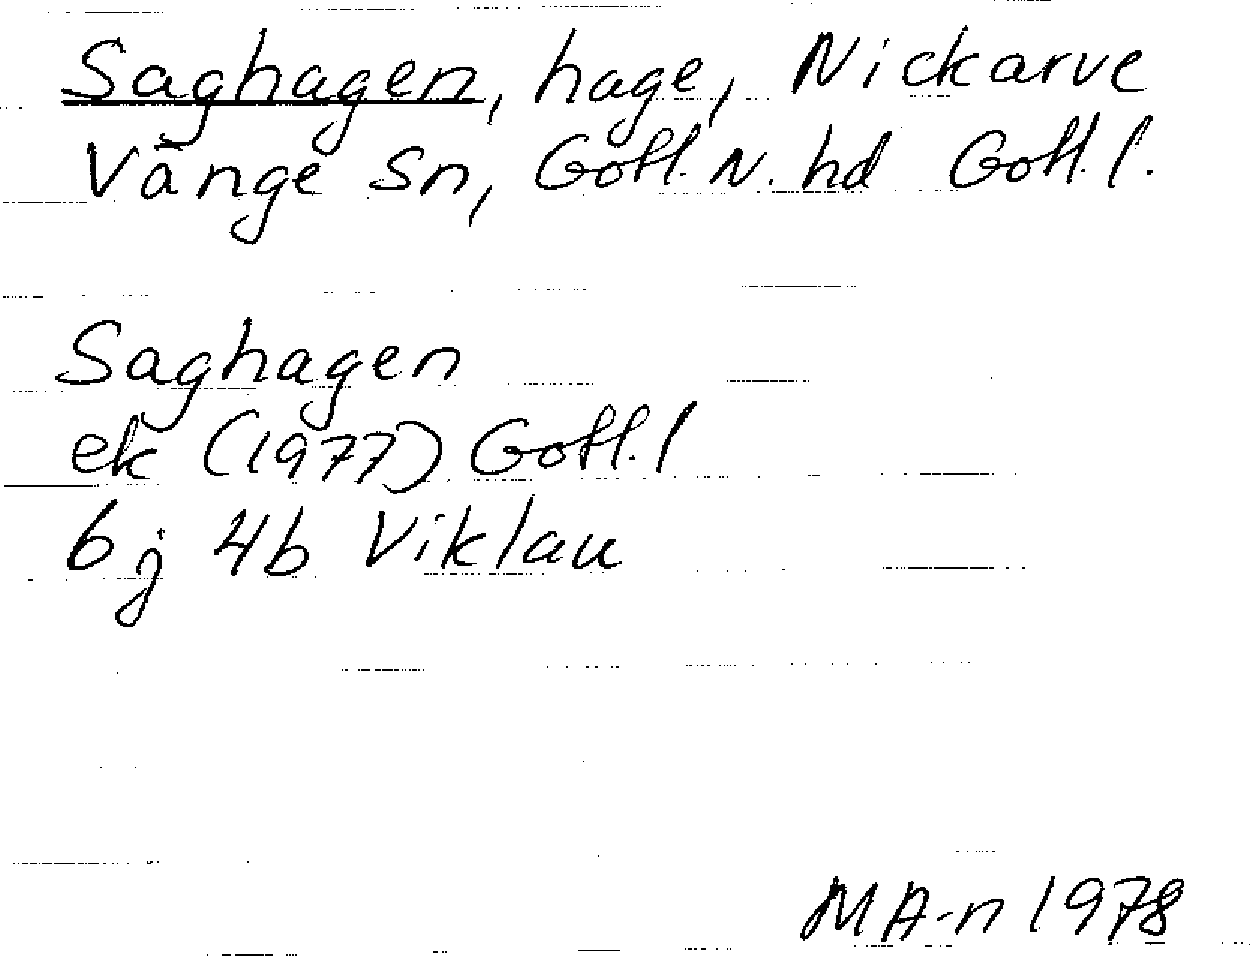 Saghagen, hage, Nickarve
Vänge sn, Gotl. N. hd Gotl. l.
Saghagen
ek (1977) Gotl. l
bj 4b Viklau
MA-n 1978